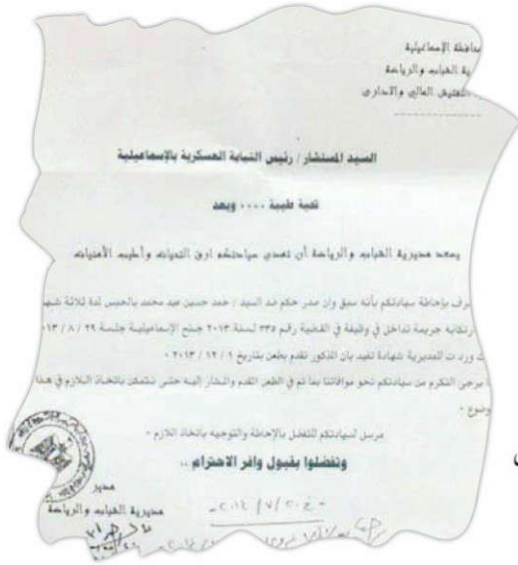 محافظة الإسماعيلية
ية الشباب والرياضة
التفتيش المالى والادارى
السيد المستشار / رئيس النيابة العسكرية بالإسماعيلية
تحية طيبة ،،،، وبعد
يسعد مديرية الشباب والرياضة أن تهدى سيادتكم ارق التحيات وأطيب الأمنيات
رف بإحاطة سيادتكم بأنه سبق وان صدر حكم ضد السيد / حمد حسين عيد محمد بالحبس لمدة ثلاثة شهـ
رتكابه جريمة تداخل في وظيفة في القضية رقم ٣٣٥ لسنة ٢٠١٣ جنح الإسماعيلية جلسة ٢٩ / ٨ / ٠١٣
ت ورد ت للمديرية شهادة تفيد بان المذكور تقدم بطعن بتاريخ ١ / ١٢ / ٢٠١٣ ٠
مرجى التكرم من سيادتكم نحو موافاتنا بما تم في الطعن المقدم والمشار إليه حتى نتمكن باتخاذ اللازم في هذا
وضوع ٠
مرسل لسيادتكم للتفضل بالإحاطة والتوجيه باتخاذ اللازم ٠
وتفضلوا بقبول وافر الاحترام ،،
مدير
مديرية الشباب والرياضة